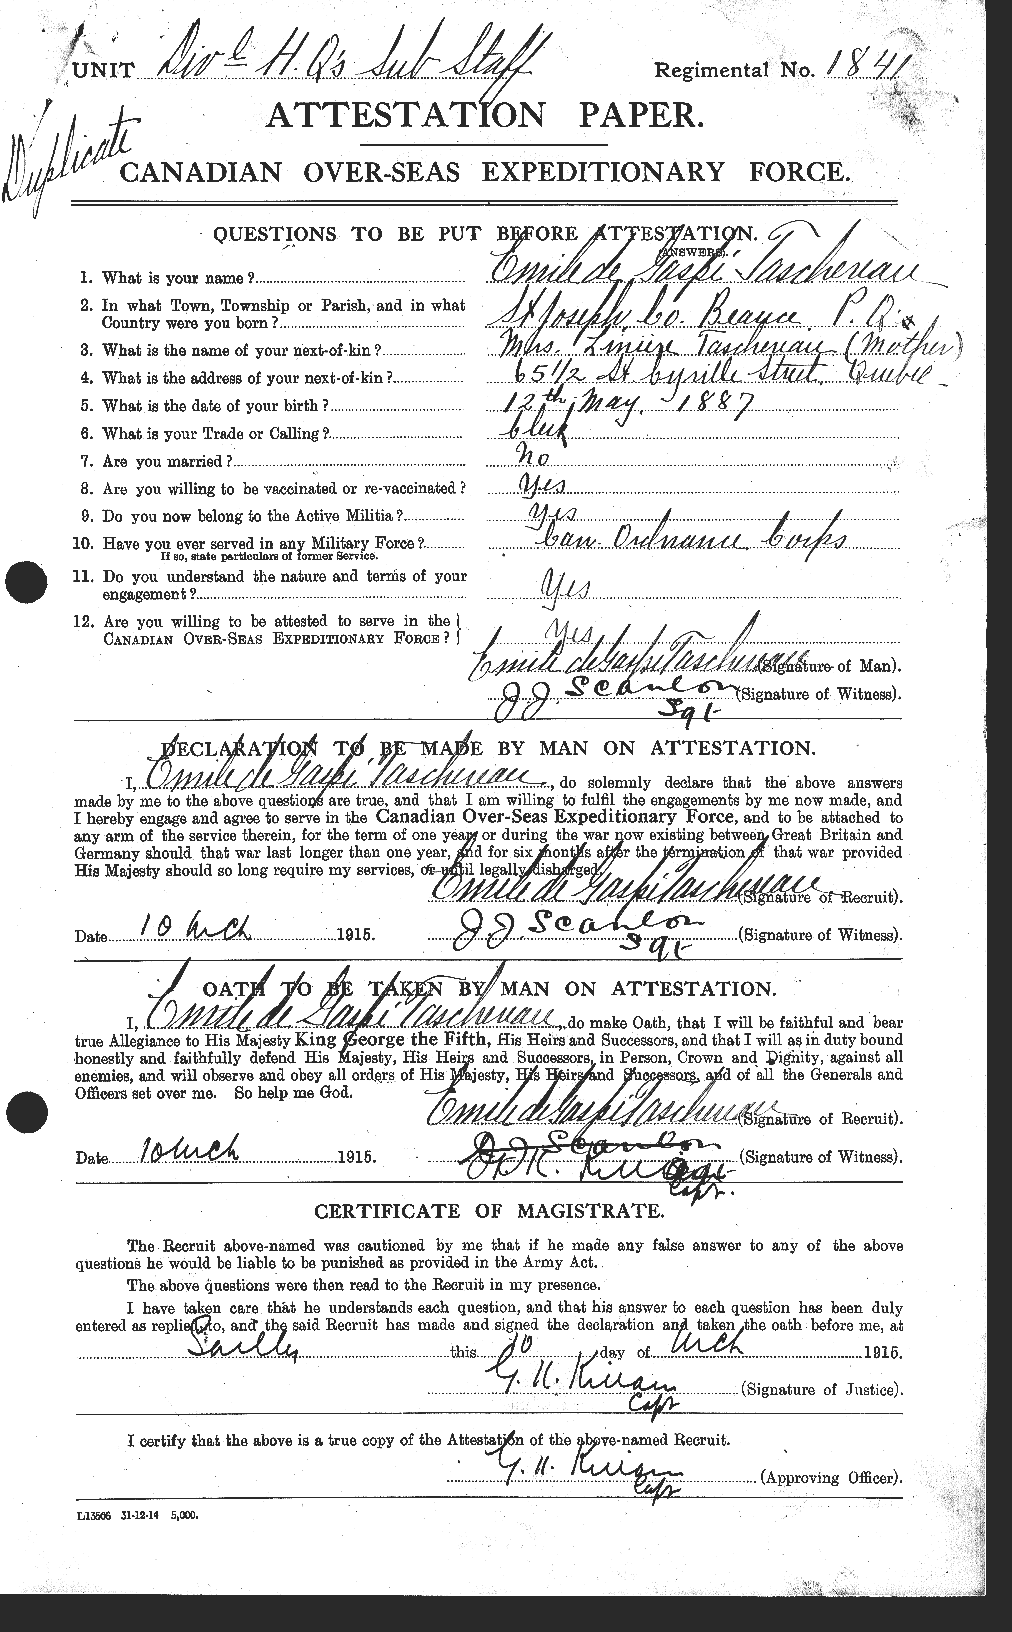 UNIT Divl H.Q's Sub Staff Regimental No. 1841
Duplicate
ATTESTATION PAPER.
CANADIAN OVER-SEAS EXPEDITIONARY FORCE.
QUESTIONS TO BE PUT BEFORE ATTESTATION.
(ANSWERS).
1. What is your name? Emile de Gaspé Taschereau
2. In what Town, Township or Parish, and in what
Country were you born? St Joseph, Co. Beauce, P.Q.
3. What is the name of your next-of-kin? Mrs. Linière Taschereau (Mother)
4. What is the address of your next-of-kin? 65 1/2 St Cyrille Street, Quebec
5. What is the date of your birth? 12th May, 1887
6. What is your Trade or Calling? Clerk
7. Are you married? No
8. Are you willing to be vaccinated or re-vaccinated? Yes
9. Do you now belong to the Active Militia? Yes
10. Have you ever served in any Military Force? Can. Ordnance Corps
If so, state particulars of former Service.
11. Do you understand the nature and terms of your
engagement? Yes
12. Are you willing to be attested to serve in the
CANADIAN OVER-SEAS EXPEDITIONARY FORCE? Yes
Emile de Gaspé Taschereau (Signature of Man).
J J Scanlon (Signature of Witness).
Sgt
DECLARATION TO BE MADE BY MAN ON ATTESTATION.
I, Emile de Gaspé Taschereau, do solemnly declare that the above answers
made by me to the above questions are true, and that I am willing to fulfil the engagements by me now made, and
I hereby engage and agree to serve in the Canadian Over-Seas Expeditionary Force, and to be attached to
any arm of the service therein, for the term of one year, or during the war now existing between Great Britain and
Germany should that war last longer than one year, and for six months after the termination of that war provided
His Majesty should so long require my services, or until legally disharged.
Emile de Gaspé Taschereau (Signature of Recruit).
Date 10 Mch 1915. J J Scanlon (Signature of Witness).
Sgt
OATH TO BE TAKEN BY MAN ON ATTESTATION.
I, Emile de Gaspé Taschereau, do make Oath, that I will be faithful and bear
true Allegiance to His Majesty King George the Fifth, His Heirs and Successors, and that I will as in duty bound
honestly and faithfully defend His Majesty, His Heirs and Successors, in Person, Crown and Dignity, against all
enemies, and will observe and obey all orders of His Majesty, His Heirs and Successors, and of all the Generals and
Officers set over me. So help me God.
Emile de Gaspé Taschereau (Signature of Recruit).
J J Scanlon
Date 10 Mch 1915. (Signature of Witness).
Capt.
CERTIFICATE OF MAGISTRATE.
The Recruit above-named was cautioned by me that if he made any false answer to any of the above
questions he would be liable to be punished as provided in the Army Act.
The above questions were then read to the Recruit in my presence.
I have taken care that he understands each question, and that his answer to each question has been duly
entered as replied to, and the said Recruit has made and signed the declaration and taken the oath before me, at
Sailly this 10 day of Mch 1915.
G. H. Kirwan (Signature of Justice).
Capt
I certify that the above is a true copy of the Attestation of the above-named Recruit.
G. H. Kirwan (Approving Officer).
Capt
L13506 31-12-14 5,000.